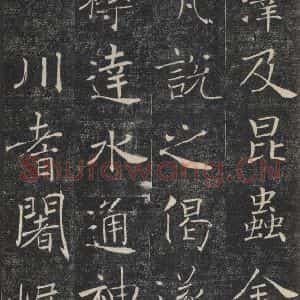 澤及昆蟲金
說之偈遂
達水通神
川耆闍
Shufawang.CN